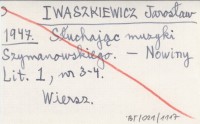 IWASZKIEWICZ Jarosław
1947. Słuchając muzyki
Szymanowskiego. — Nowiny
Lit. 1, nr 3-4.
Wiersz.
BT/021/1117